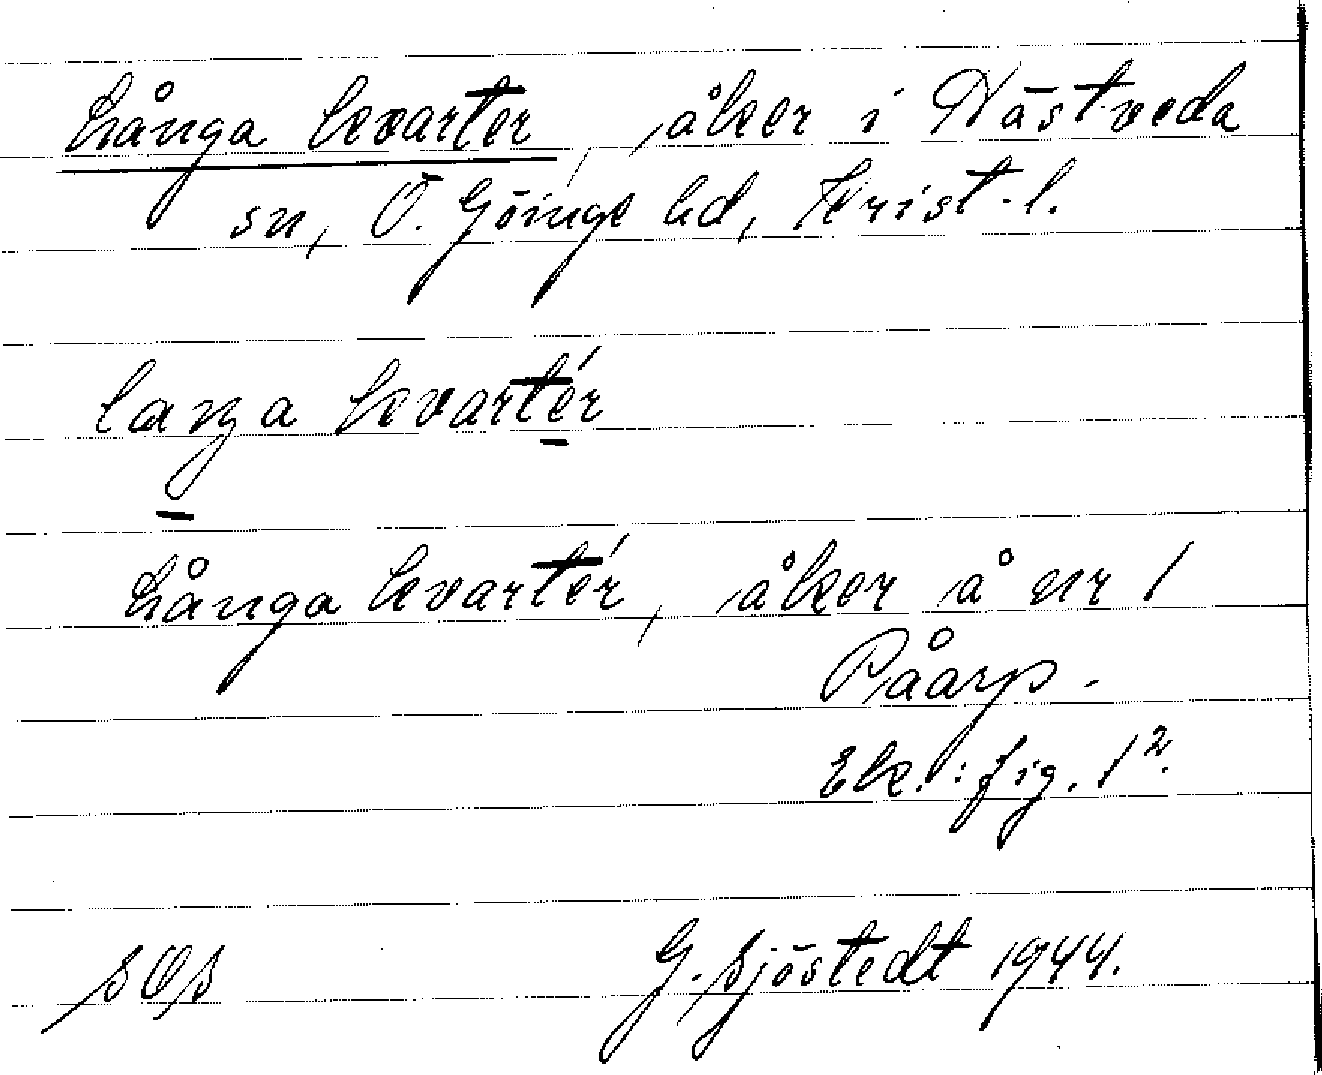 Långa kvarter, åker i Hästveda
sn, Ö. Göinge hd, Krist. l.
laŋa kvartér
Långa kvartér, åker å nr 1
Påarp.
Ek.: fig. 1².
G. Sjöstedt 1944.